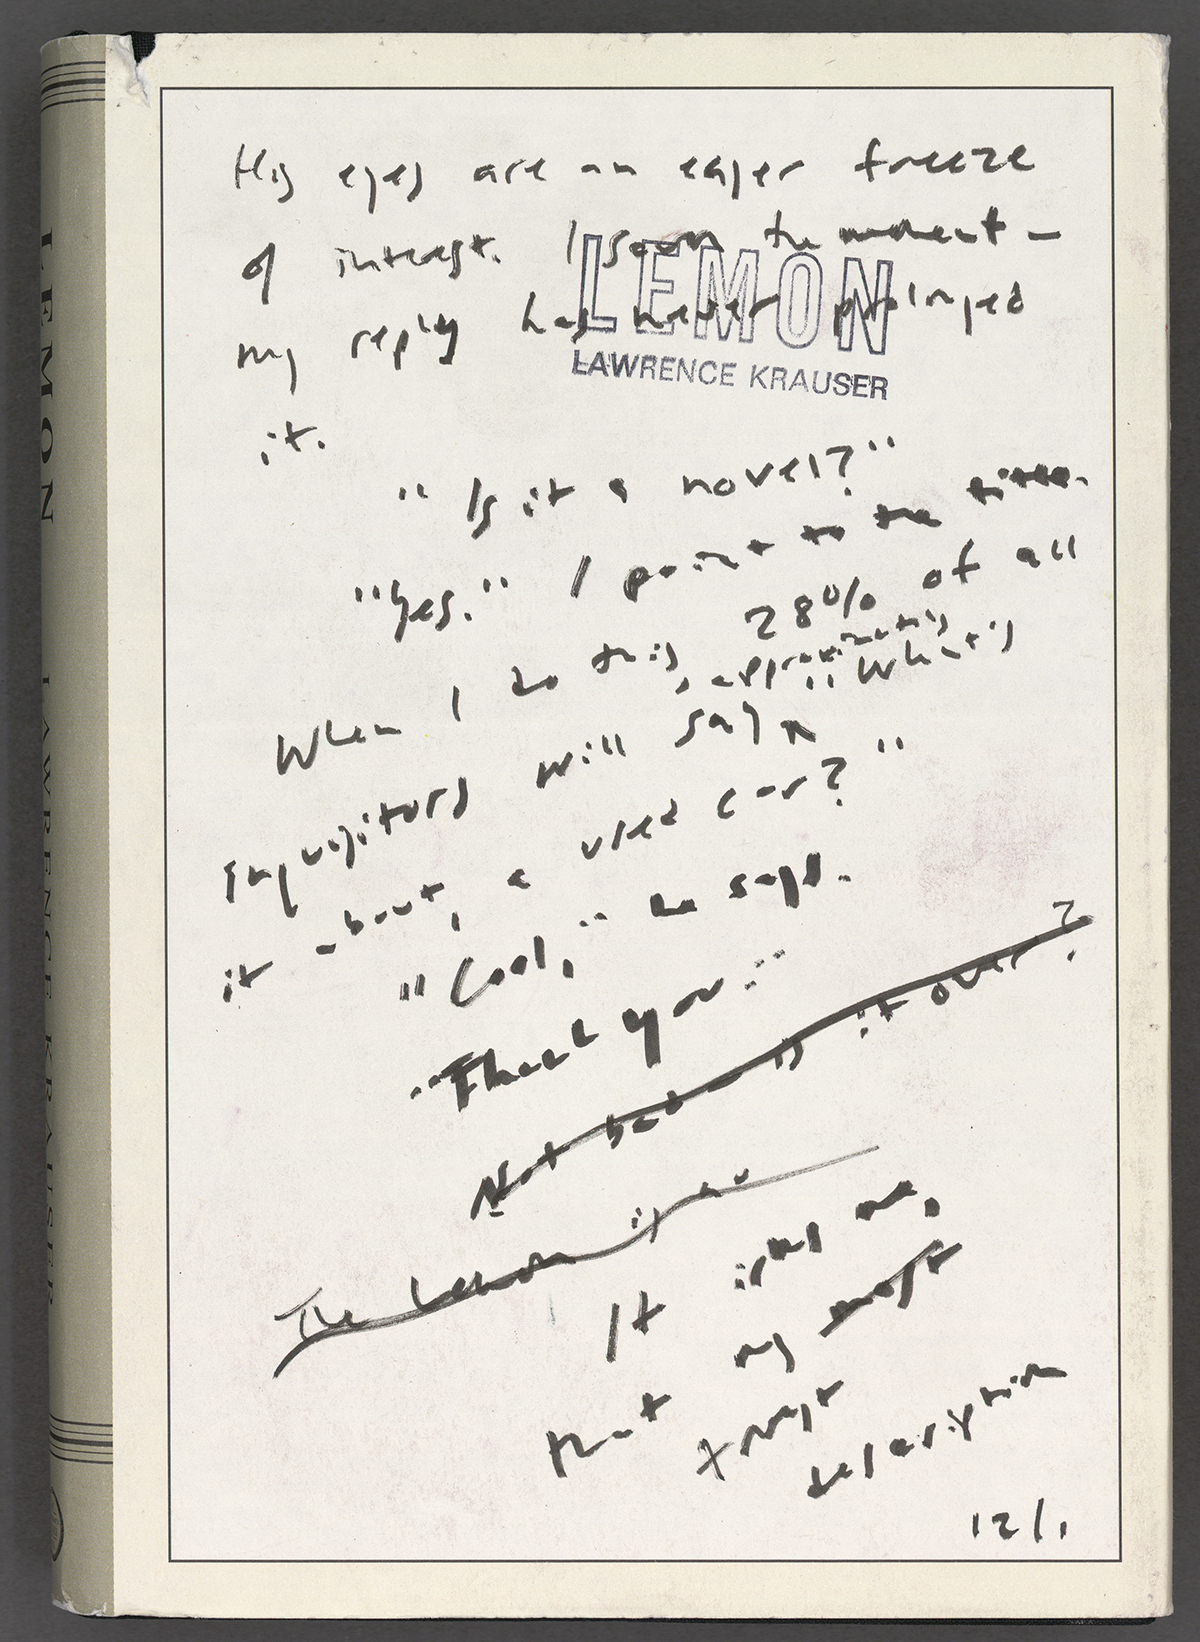 His eyes are an eager freeze
of interest. I soon the moment –
LEMON
my reply has never prolonged
LAWRENCE KRAUSER
it.
"Is it a novel?"
"Yes." I point to the title.
When I do this, 28% of all
approximately
inquisitors will say "What is
it about, a used car?"
"Cool," he says.
"Thank you."
Not bad – is it over?
The Lemon
It irks me,
that my most
trust
description
12/1
LEMON LAWRENCE KRAUSER